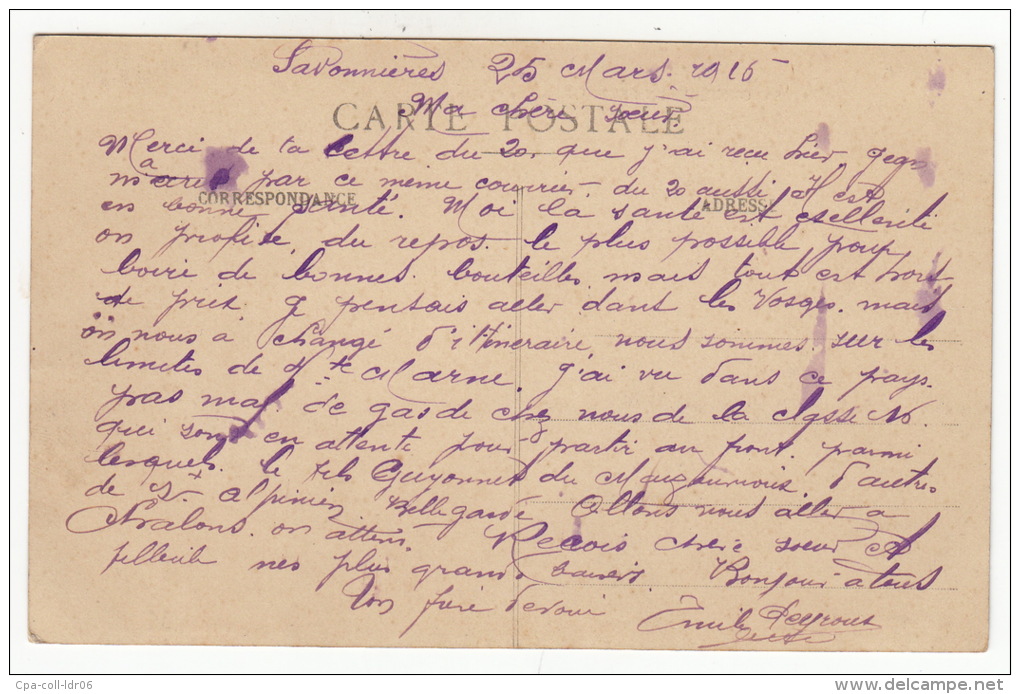 Savonnières 25 Mars. 1916
CARTE POSTALE
Ma chère soeur.
Merci de ta lettre du 20. que j'ai recu hier
a
par ce meme courrier du 20 aussi Il est
CORRESPONDANCE
ADRESSE
en bonne santé. Moi la santé est exellente
on profite du repos. le plus possible, pour
boire de bonnes bouteilles mais tout est hors
de prix. Je pensais aller dans les Vosges. mais
on nous a changé d'itineraire, nous sommes. sur les
limites de Hte Marne. J'ai vu dans ce pays.
pas mal de gas de chez nous de la classe 16.
qui sont en attente pour partir au front. parmi
lesquels. le fils Guyonnet du d'autres
de St Alpinien Bellegarde Allons nous aller a
Chalons. on attend. Recois chere soeur et
filleule mes plus grands baisers Bonjour a tous
Ton frère devoué
Emile Peyrout
Cpa-coll-ldr06
www.delcampe.net